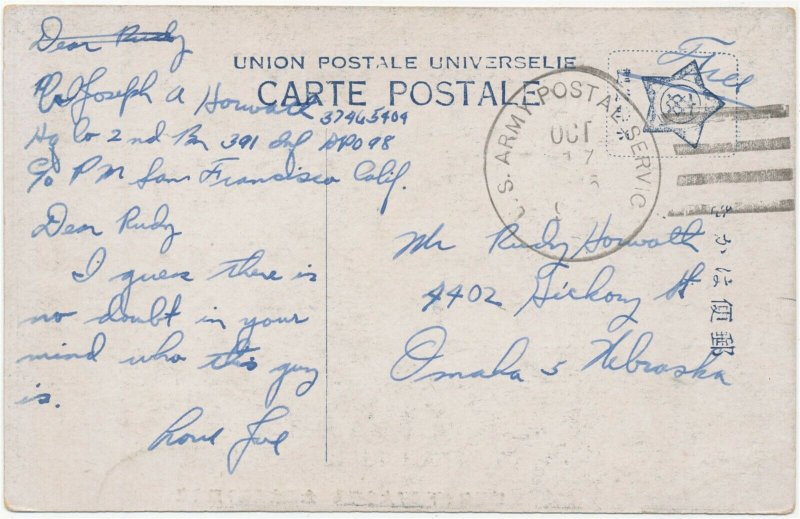 Dear Rudy
UNION POSTALE UNIVERSELLE
CARTE POSTALE
Free
Joseph A Horwath
37465404
Hq Co 2nd Bn 391 Inf APO 98
c/o P M San Francisco Calif.
Dear Rudy
I guess there is
no doubt in your
mind who this guy
is.
Love Joe
U.S. ARMY POSTAL SERVIC
OCT
17
Mr Rudy Horwath
4402 Hickory St
Omaha 5 Nebraska
郵便はかき